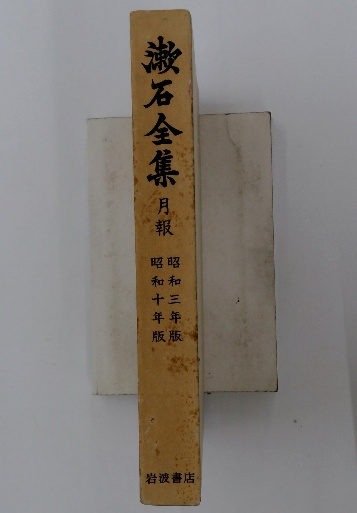 漱石全集
月報
昭和三年版
昭和十年版
岩波書店